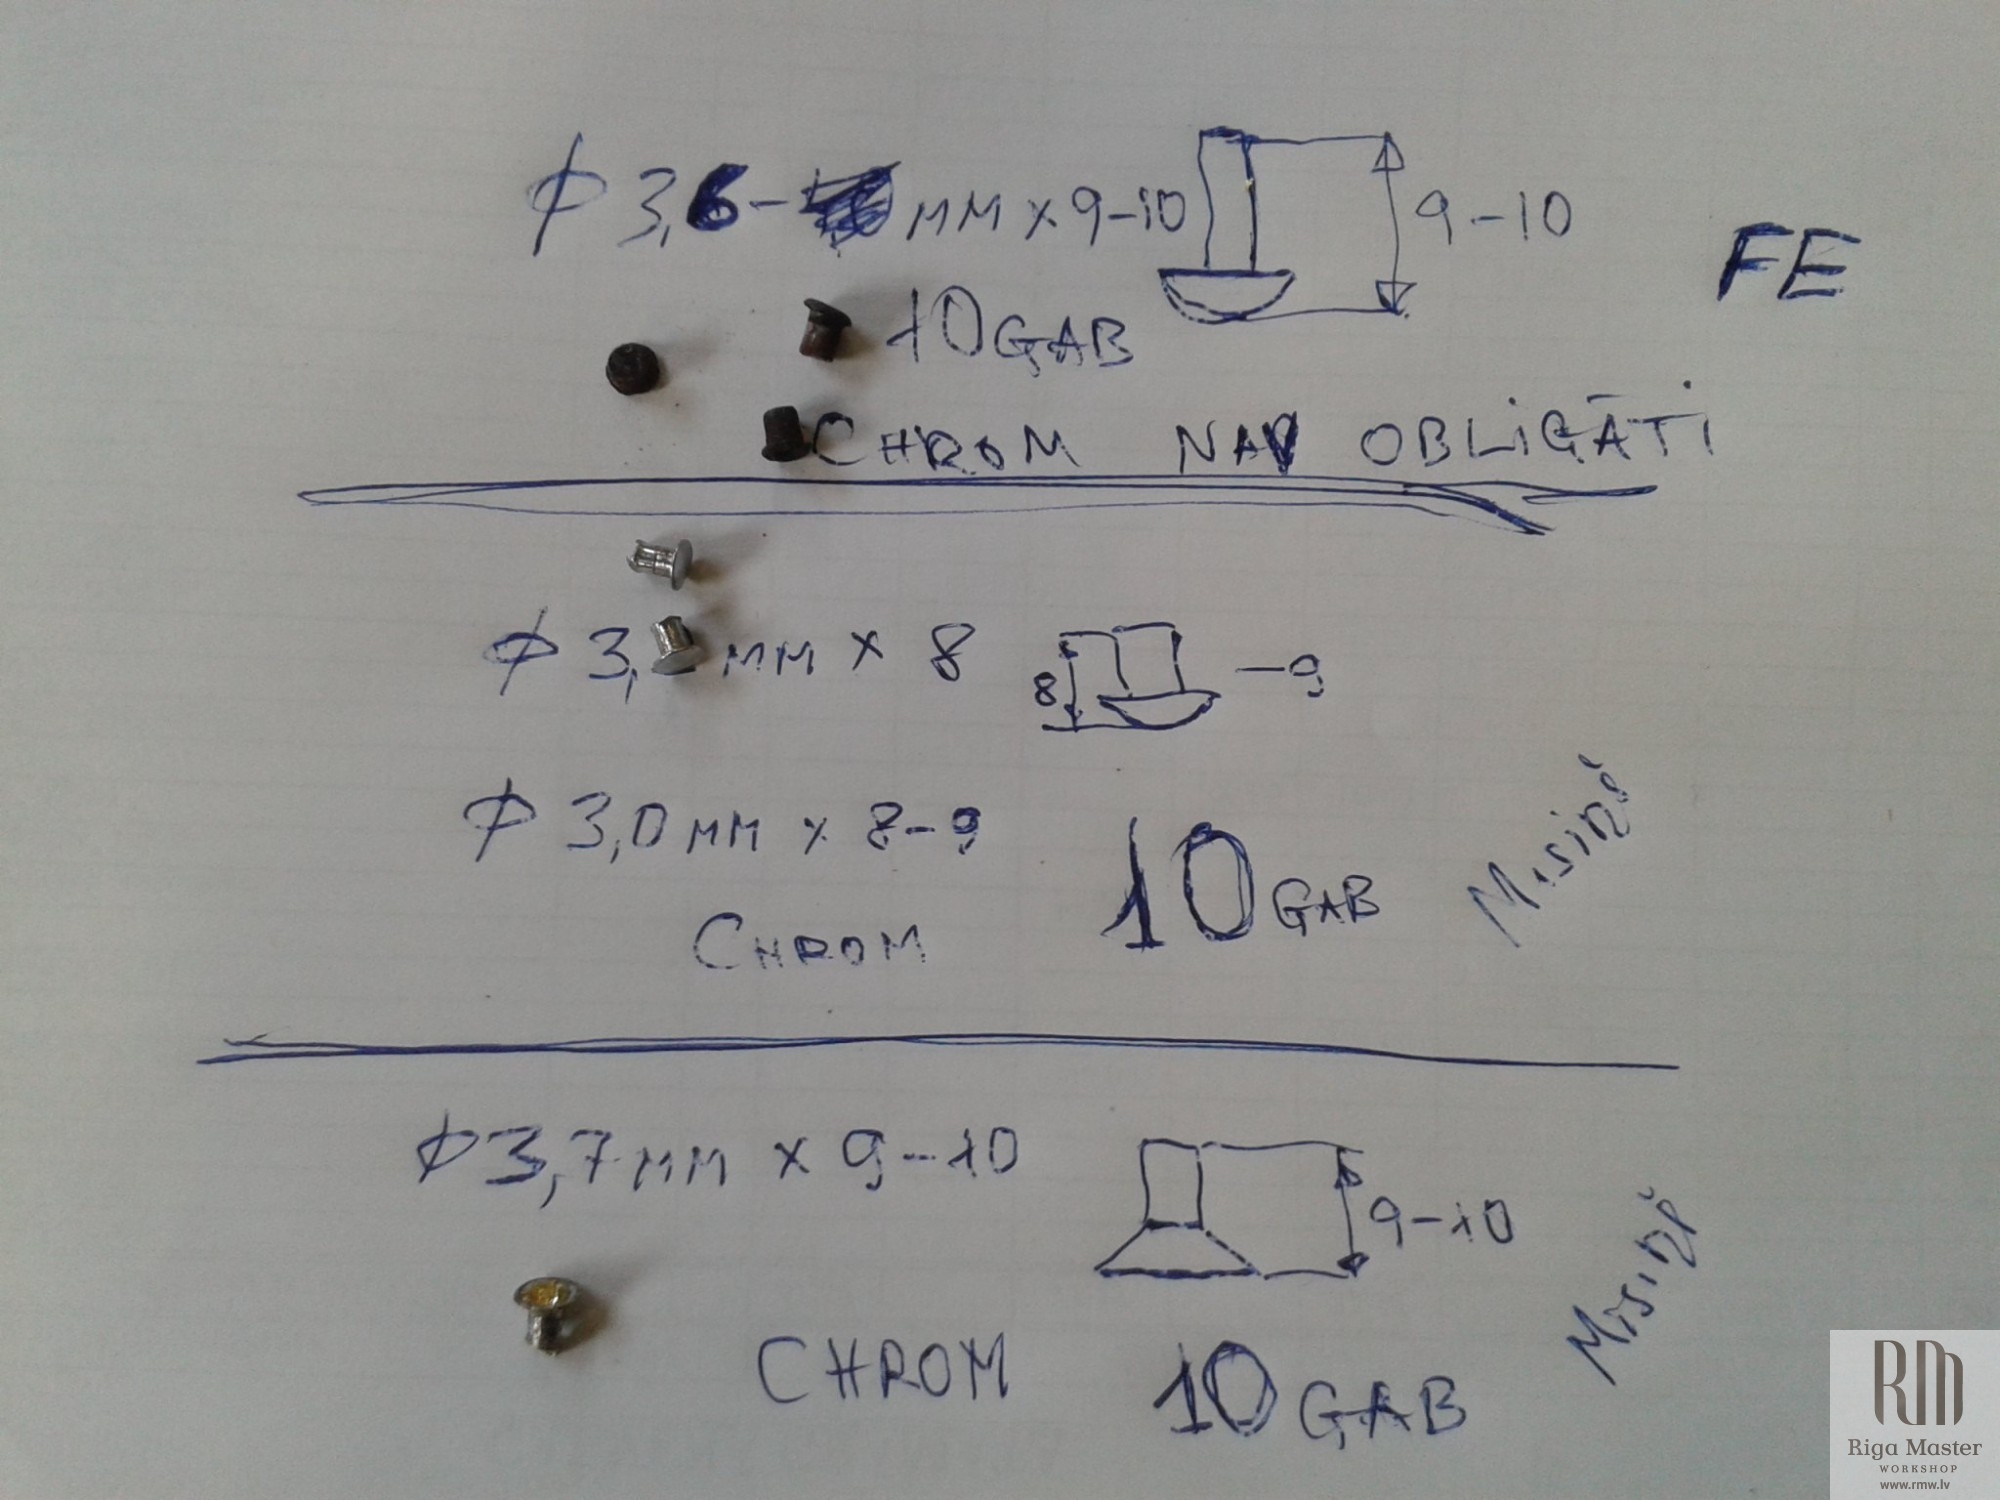 φ 3,6- мм x 9-10
9-10
FE
10 GAB
CHROM NAV OBLIGĀTI
φ 3, мм x 8
8
-9
φ 3,0 мм x 8-9
10 GAB
Misiņš
CHROM
φ 3,7 мм x 9-10
9-10
Misiņš
CHROM
10 GAB
RM
Riga Master
WORKSHOP
www.rmw.lv